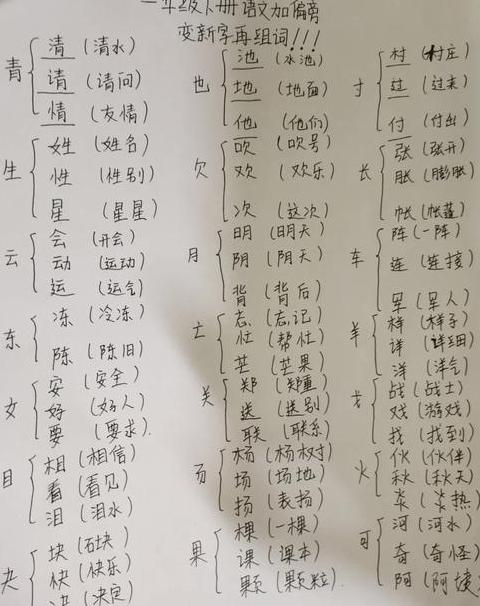 一年级下册语文加偏旁
变新字再组词!!!
清 (清水)
青 请 (请问)
情 (友情)
姓 (姓名)
生 性 (性别)
星 (星星)
会 (开会)
云 动 (运动)
运 (运气)
冻 (冷冻)
东
陈 (陈旧)
安 (安全)
女 好 (好人)
要 (要求).
相 (相信)
目 看 (看见)
泪 (泪水)
块 (石块)
夬 快 (快乐)
决 (决定)
池 (水池)
也 地 (地面)
他 (他们)
吹 (吹号)
欠 欢 (欢乐)
次 (这次)
明 (明天)
月 阴 (阴天)
背 (背后)
忘 (忘记)
亡 忙 (帮忙)
芒 (芒果)
郑 (郑重)
关 送 (送别)
联 (联系)
杨 (杨树)
场 (场地)
扬 (表扬)
棵 (一棵)
果 课 (课本)
颗 (颗粒).
村 (村庄)
寸 过 (过来)
付 (付出)
张 (张开)
长 胀 (膨胀)
帐 (帐篷)
阵 (一阵)
车 连 (连接)
军 (军人)
样 (样子)
羊 详 (详细)
洋 (洋气)
战 (战士)
戈 戏 (游戏)
找 (找到)
伙 (伙伴)
火 秋 (秋天)
炎 (炎热)
河 (河水)
可 奇 (奇怪)
阿 (阿姨